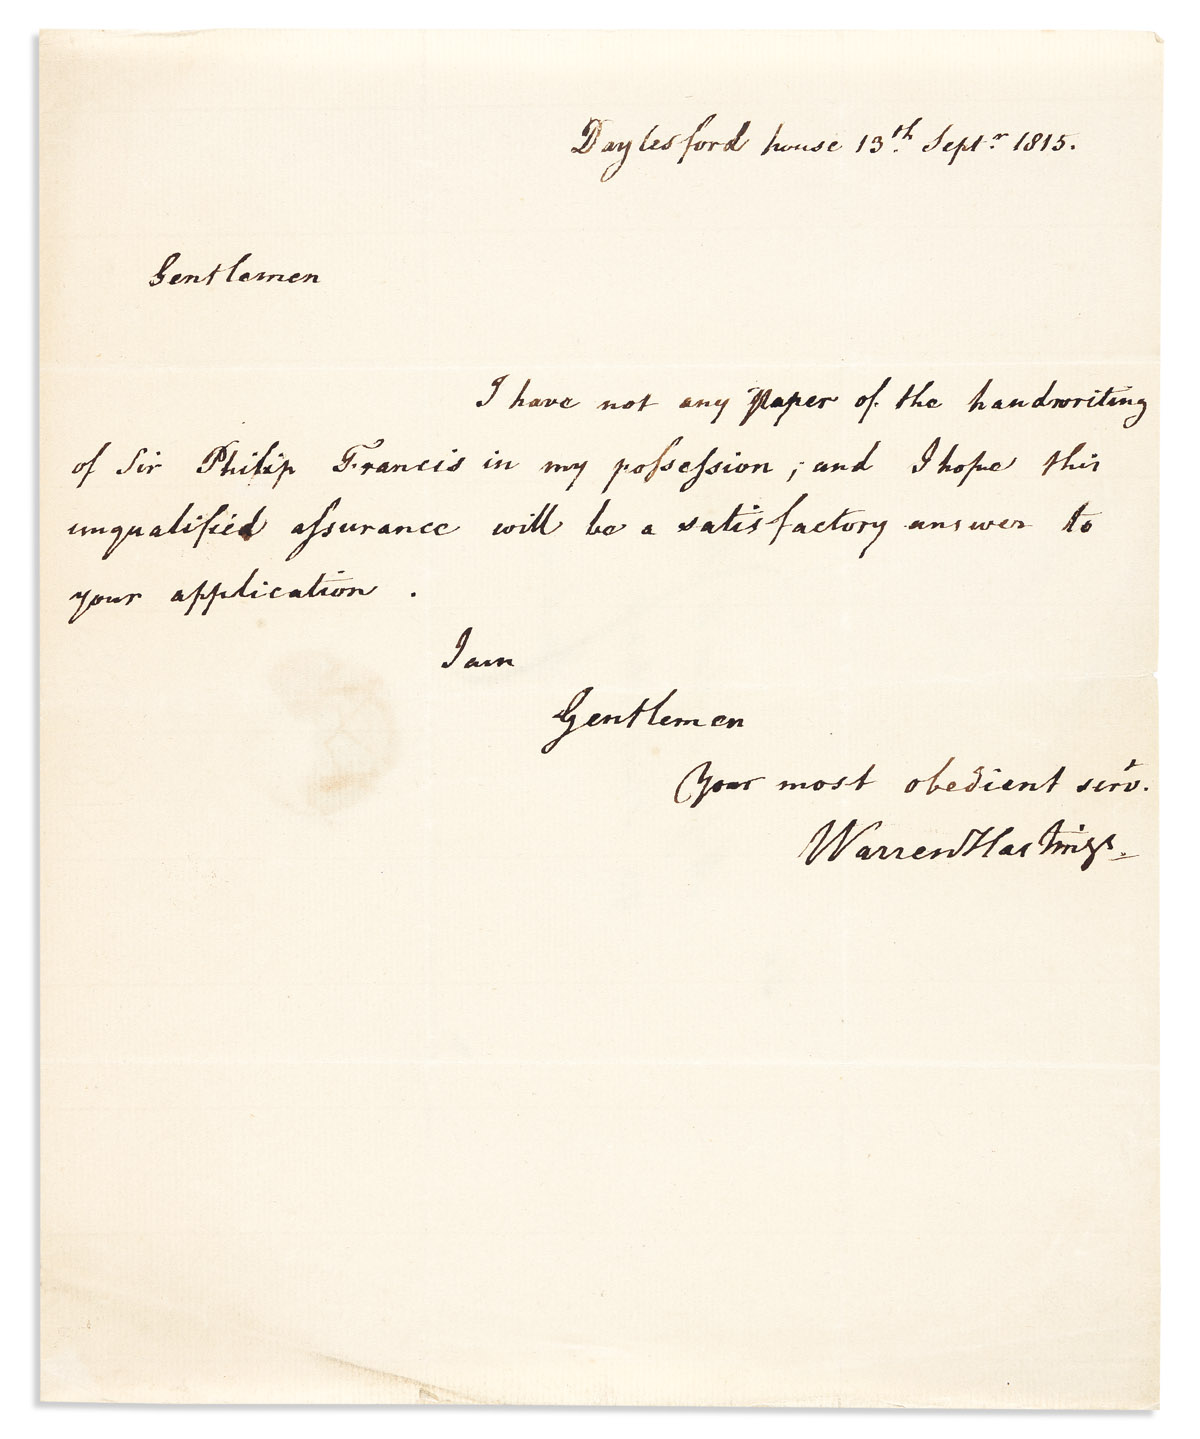 Daylesford house 13th. Septr. 1815.
Gentlemen
I have not any paper of the handwriting
of Sir Philip Francis in my possession; and I hope this
unqualified assurance will be a satisfactory answer to
your application.
I am
Gentlemen
Your most obedient servt.
Warren Hastings.